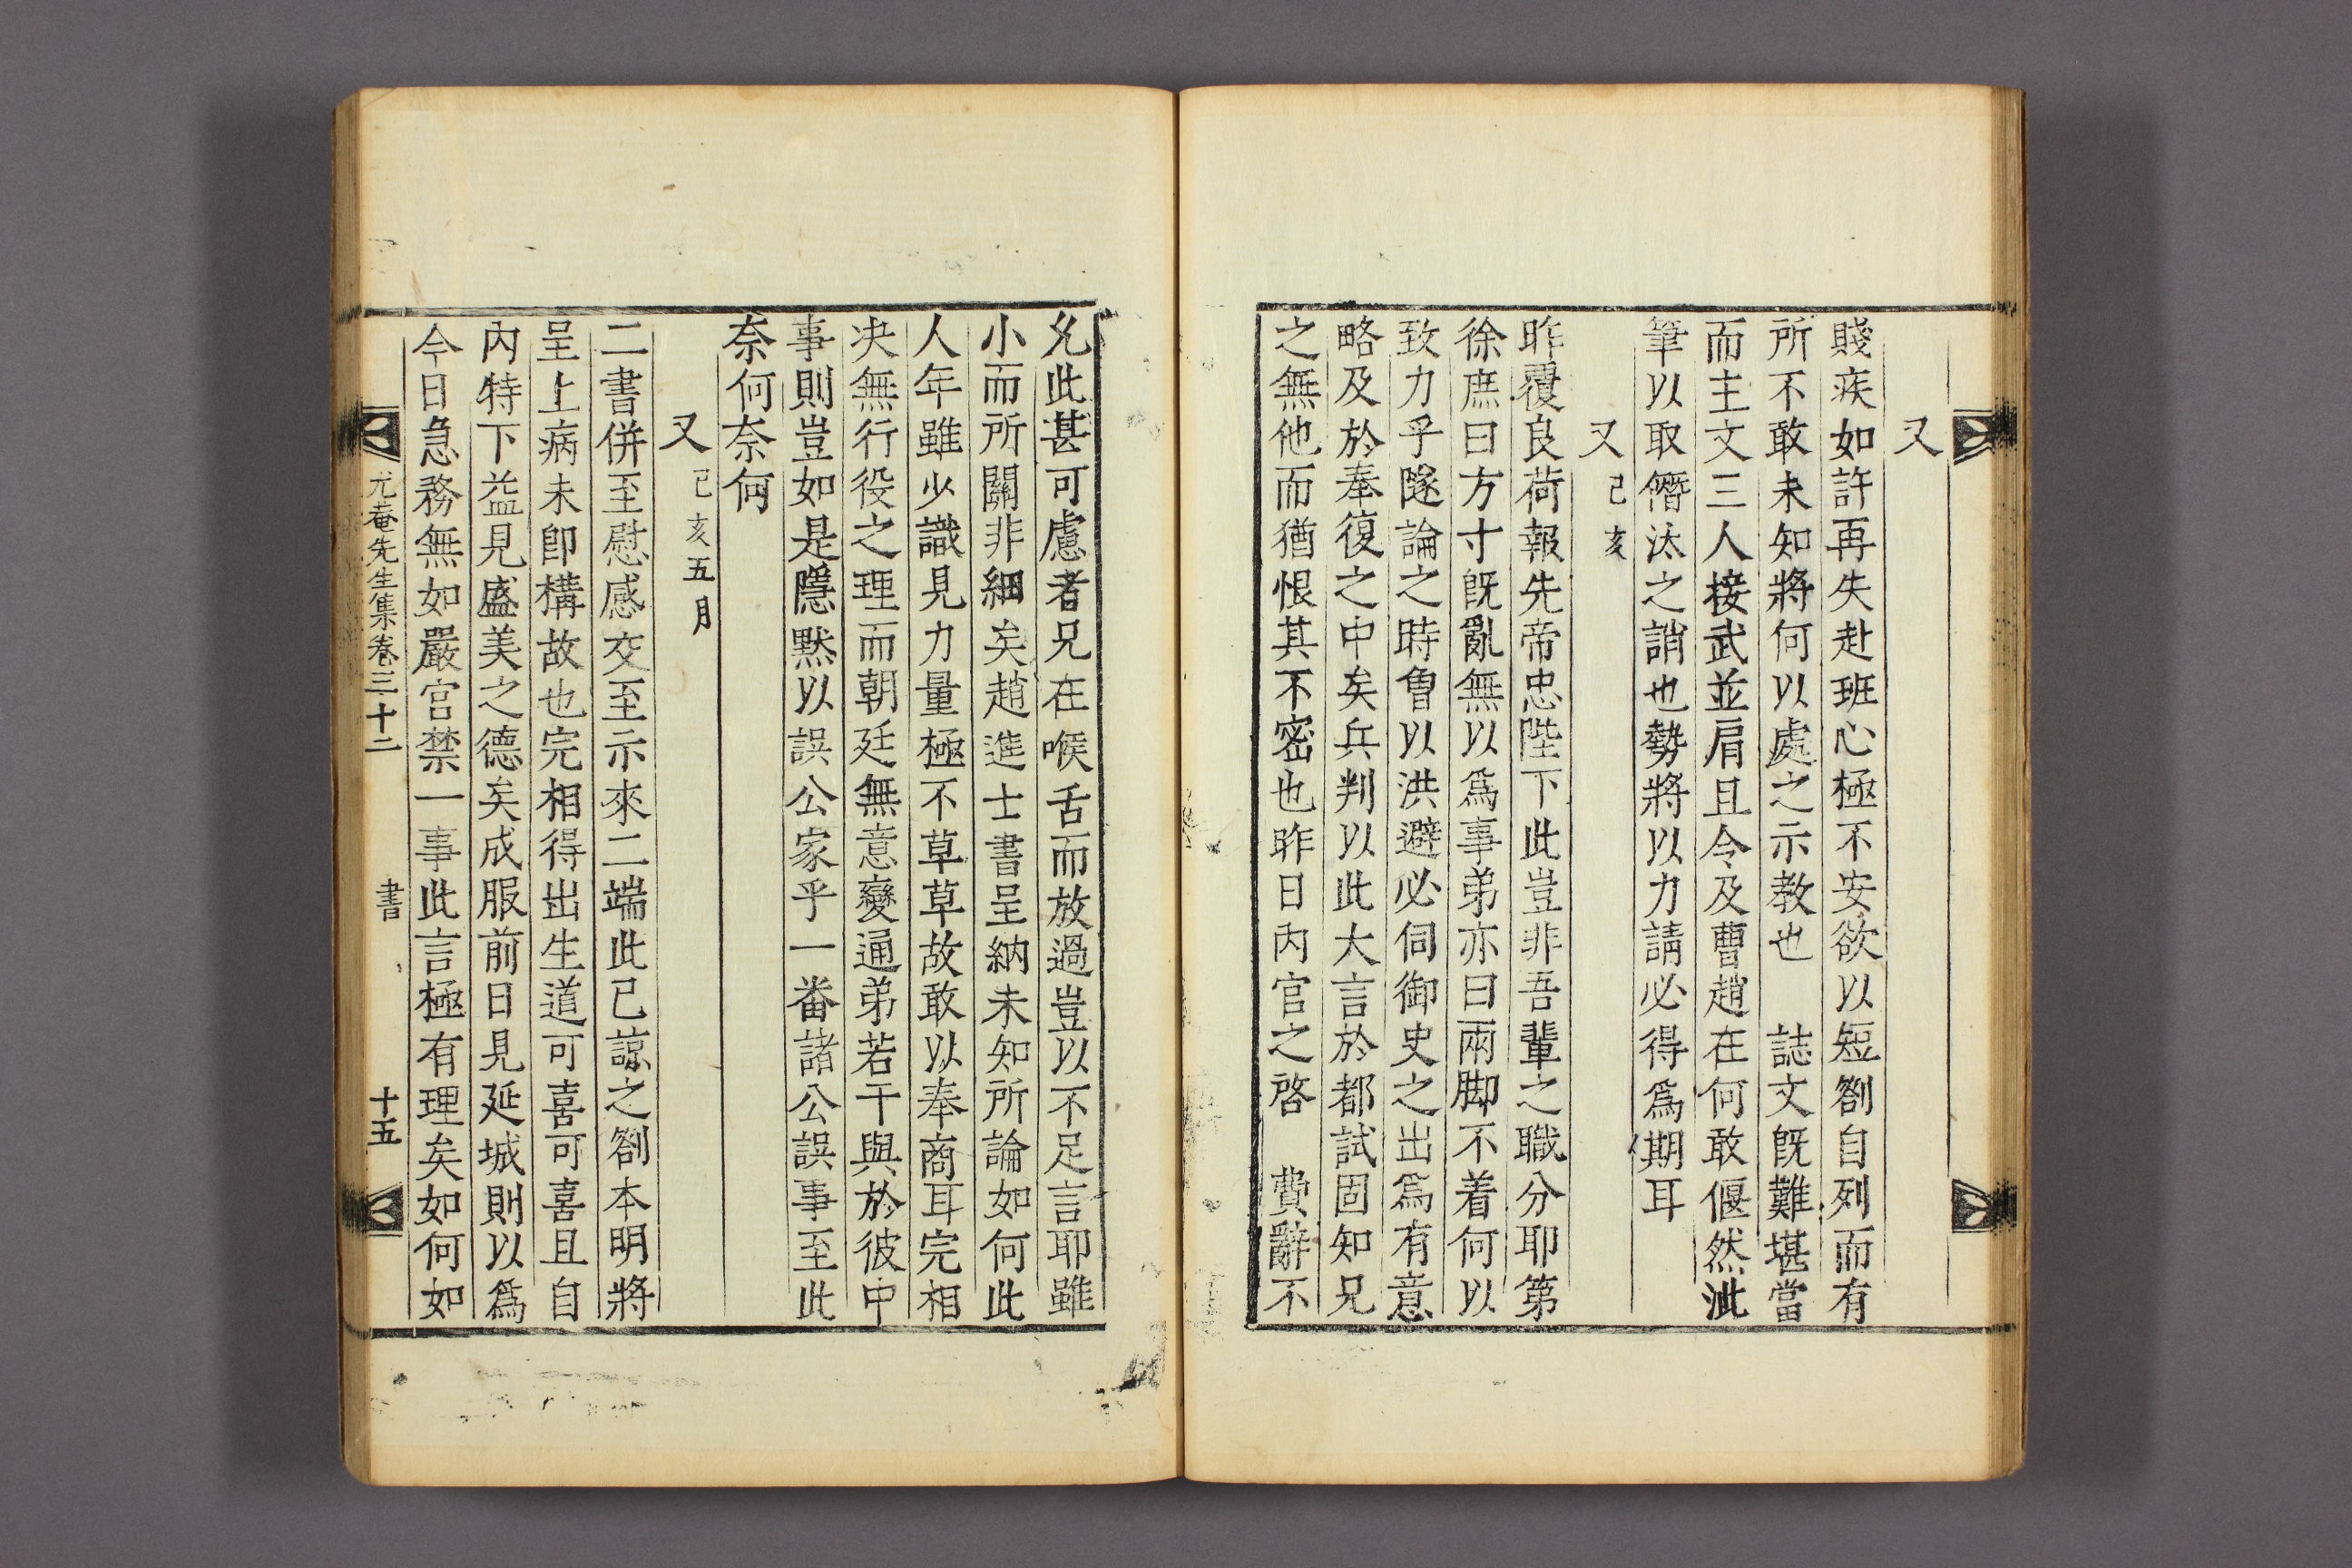 又
賤疾如許再失赴班心極不安欲以短劄自列而有
所不敢未知將何以處之示敎也　誌文旣難堪當
而主文三人接武並肩且令及曹趙在何敢偃然泚
筆以取僭汰之誚也勢將以力請必得爲期耳
又己亥
昨覆良荷報先帝忠陛下此豈非吾輩之職分耶第
徐庶曰方寸旣亂無以爲事弟亦曰兩脚不着何以
致力乎隧論之時曾以洪避必伺御史之出爲有意
略及於奉復之中矣兵判以此大言於都試固知兄
之無他而猶恨其不密也昨日內官之啓　費辭不
允此甚可慮者兄在喉舌而放過豈以不足言耶雖
小而所關非細矣趙進士書呈納未知所論如何此
人年雖少識見力量極不草草故敢以奉商耳完相
决無行役之理而朝廷無意變通弟若干與於彼中
事則豈如是隱默以誤公家乎一番諸公誤事至此
奈何奈何
又己亥五月
二書併至慰感交至示來二端此已諒之劄本明將
呈上病未卽搆故也完相得出生道可喜可喜且自
內特下益見盛美之德矣成服前日見延城則以爲
今日急務無如嚴宮禁一事此言極有理矣如何如
尤菴先生集卷三十二
書
十五